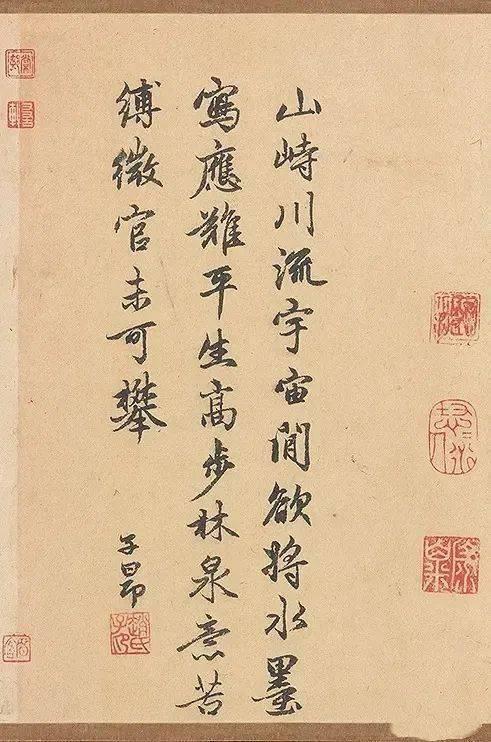 山峙川流宇宙間欲將水墨
寫應難平生高步林泉意苦
縛微官未可攀
子昂
趙氏子昂